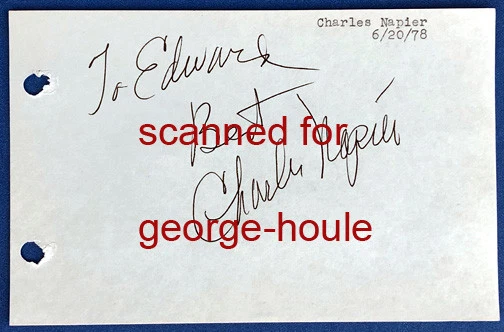 Charles Napier
6/20/78
To Edward
Best
Charles Napier
scanned for
george-houle